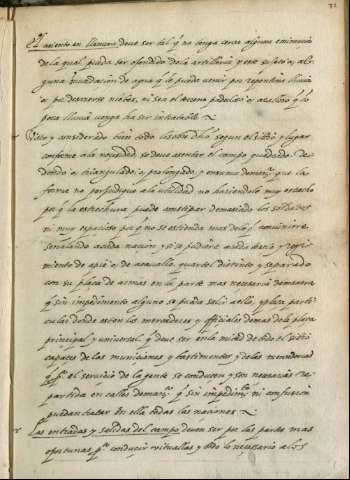 El asiento en llanura deve ser tal q̃ no tenga cerca alguna eminencia
de la qual pueda ser ofendido de la artilleria y este sujeto a al-
guna inundacion de agua q̃ le pueda venir por repentina lluvia
o por deshazerse nieves, ni sea el terreno o q̃ lo
poca lluvia venga ha ser intratable
Visto y considerado bien todo lo sobre dicho segun el sitio y lugar
conforme a la necesidad se deve asentar el campo quadrado Re-
dondo o triangulado o prolongado y en suma de manera que la
forma no perjudique a la utilidad no haciendolo muy estrecho
por q̃ la estrechura puede demasiado los soldados
ni muy espacioso por q̃ no se estienda mas de lo q̃ conviniere
señalando a cada nacion y si se pudiere a cada tercio y regi-
miento de a pie o de a cavallo quartel distinto y separado
con su plaza de armas en la parte mas necesaria de manera
q̃ sin impedimento alguno se pueda salir a ella, y plaza parti-
cular donde esten los mercaderes y officiales demas de la plaza
principal y universal q̃ deve ser en la mitad de todo el sitio
capaces de las municiones y bastimentos y de las
q̃ pª el servicio de la gente se conducen y son necesarias re-
partida en calles de manera q̃ sin impedimto ni confusion
puedan tratar en ella todas las naciones
Las entradas y salidas del campo deven ser por las partes mas
oportunas pª conducir vituallas y todo lo necessario a los